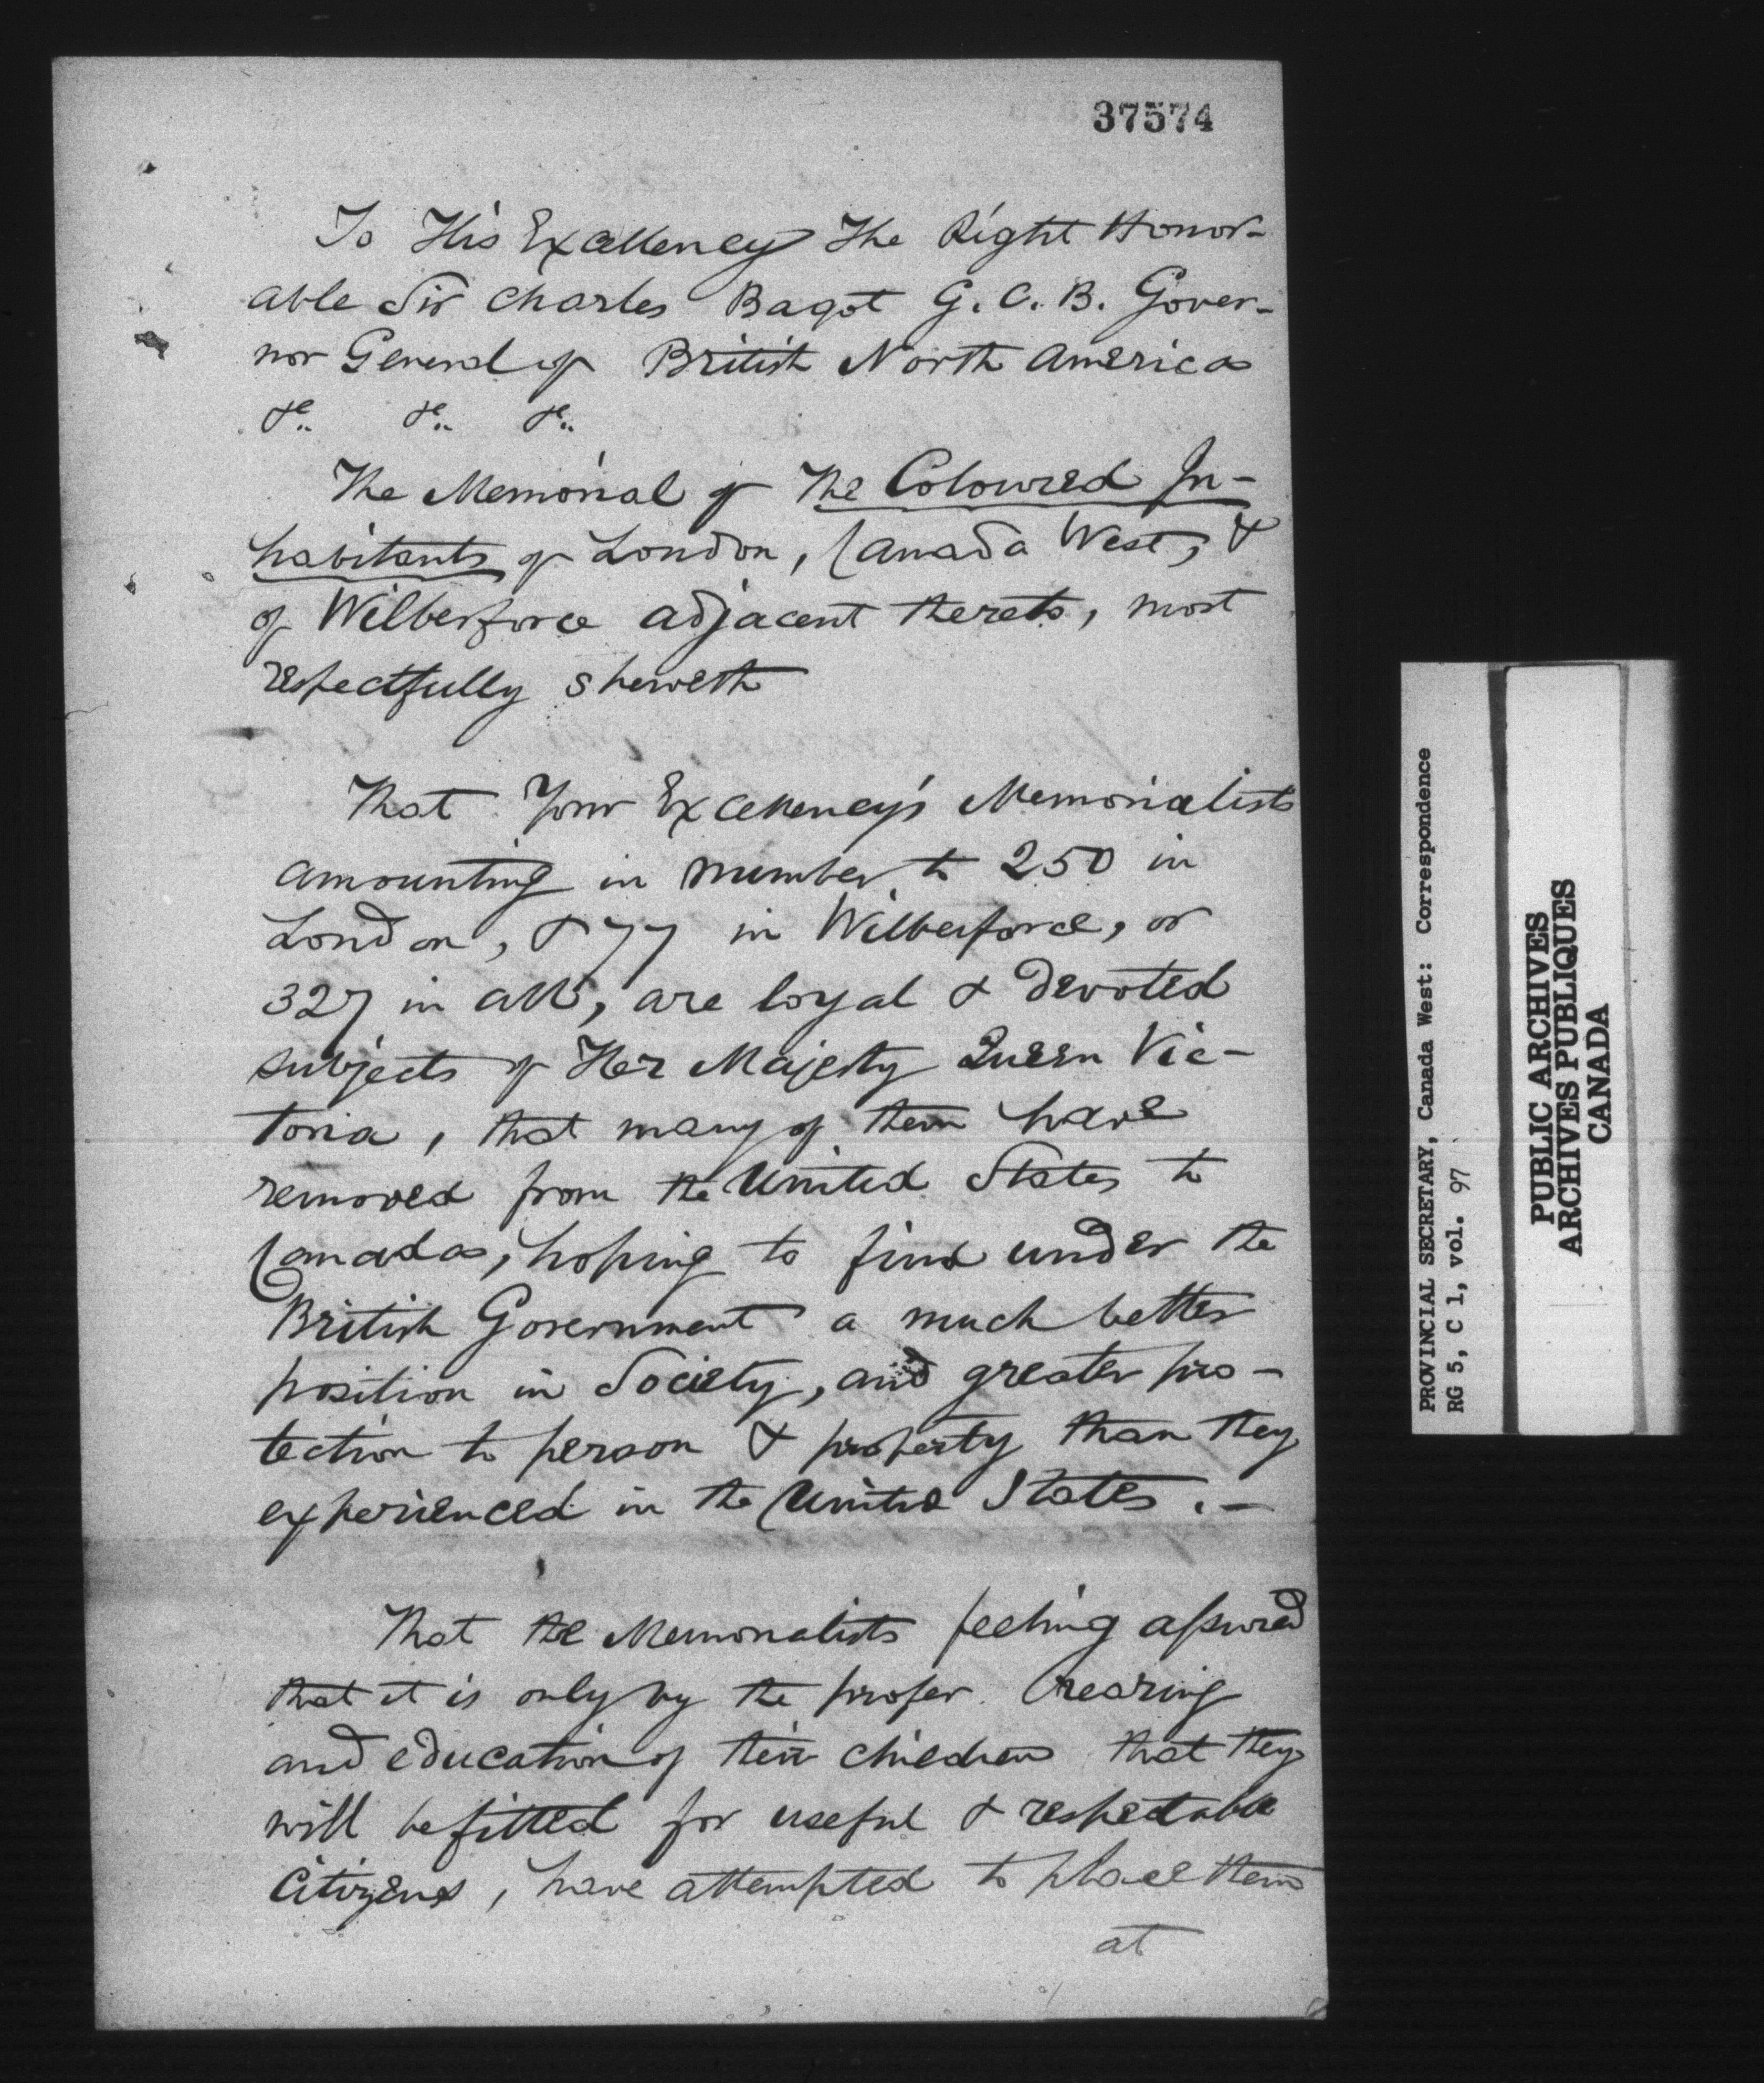 37574
To His Excellency The Right Honor-
able Sir Charles Bagot G. C. B. Gover-
nor General of British North America
&c.. &c.. &c..
The Memorial of The Coloured In-
habitants of London, Canada West, &
of Wilberforce adjacent thereto, most
respectfully sheweth
That Your Excellency's Memorialists
amounting in number to 250 in
London, & 77 in Wilberforce, or
327 in all, are loyal & devoted
subjects of Her Majesty Queen Vic-
toria, that many of them have
removed from the United States to
Canada, hoping to find under the
British Government a much better
position in Society, and greater pro-
tection to person & property than they
experienced in the United States. -
That the Memorialists feeling assured
that it is only by the proper rearing
and education of their children that they
will be fitted for useful & respectable
Citizens, have attempted to place them
at
PROVINCIAL SECRETARY, Canada West: Correspondence
RG 5, C 1, vol. 97
PUBLIC ARCHIVES
ARCHIVES PUBLIQUES
CANADA